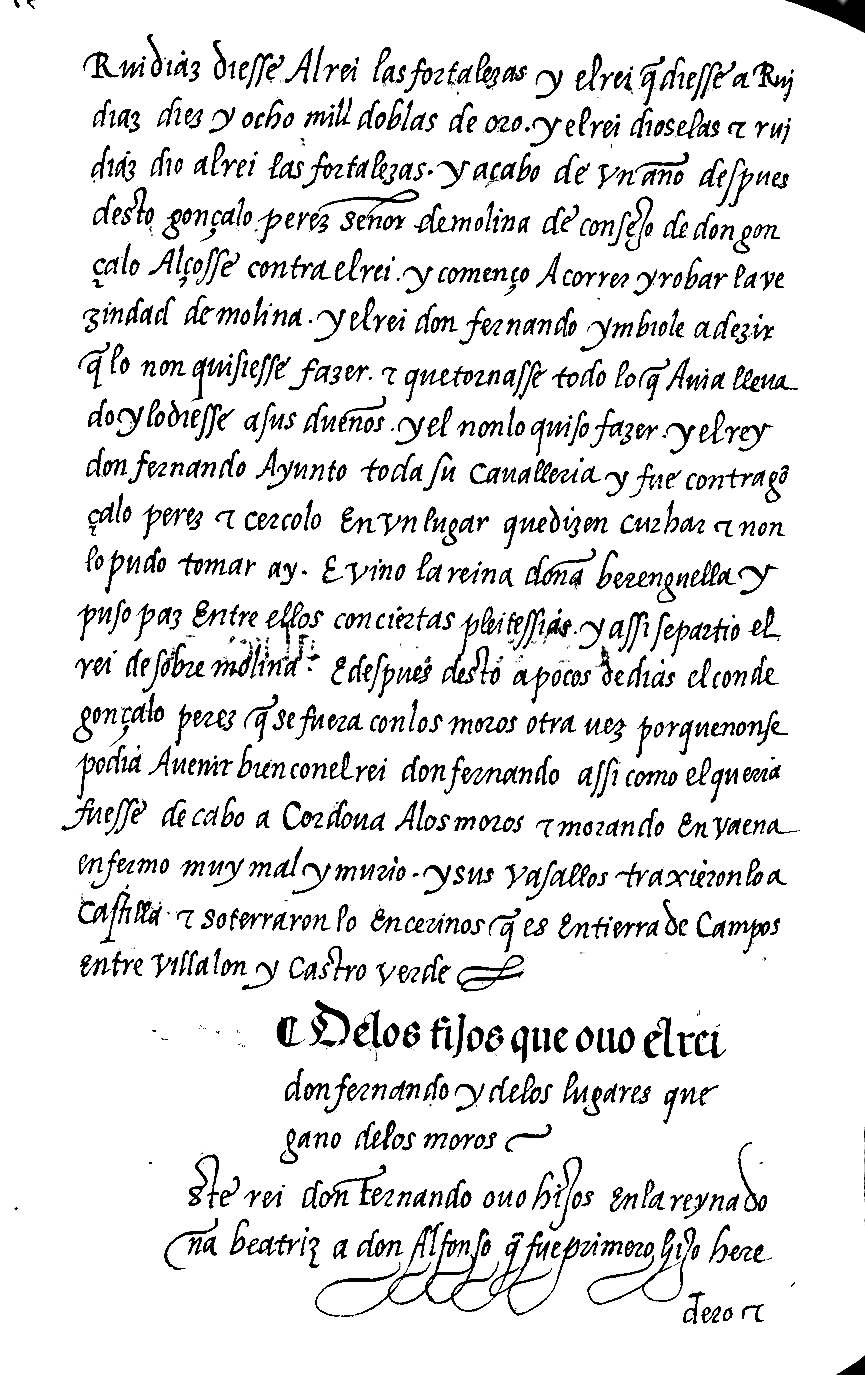 Rui diaz diesse Al rei las fortalezas y el rei q̃ diesse a Rui
diaz diez y ocho mill doblas de oro. y el rei dioselas ⁊ rui
diaz dio al rei las fortalezas. y acabo de vn año despues
desto gonçalo perez señor de molina de consejo de don gon
çalo Alçosse contra el rei. y començo A correr y robar la ve
zindad de molina. y el rei don fernando ymbiole a dezir
q̃ lo non quisiesse fazer. ⁊ que tornasse todo lo q̃ Auia lleua
do y lo diesse a sus dueños. y el non lo quiso fazer. y el rey
don fernando Ayunto toda su Caualleria y fue contra gõ
çalo perez ⁊ cercolo En vn lugar que dizen curhar ⁊ non
lo pudo tomar ay. E vino la reina doña berenguella y
puso paz Entre ellos con ciertas pleitessias. y assi se partio el
rei de sobre molina. E despues desto a pocos de dias el conde
gonçalo perez q̃ se fuera con los moros otra uez porque non se
podia Auenir bien con el rei don fernando assi como el queria
fuesse de cabo a Cordoua A los moros ⁊ morando En vaena
enfermo muy mal y murio. y sus vasallos traxieron lo a
Castilla ⁊ soterraron lo En cerinos q̃ es En tierra de Campos
Entre villalon y Castro verde
¶ De los fijos que ouo el rei
don fernando y de los lugares que
gano de los moros
Este rei don Fernando ouo hijos En la reyna do
ña beatriz a don Alfonso q̃ fue primero hijo here
dero ⁊